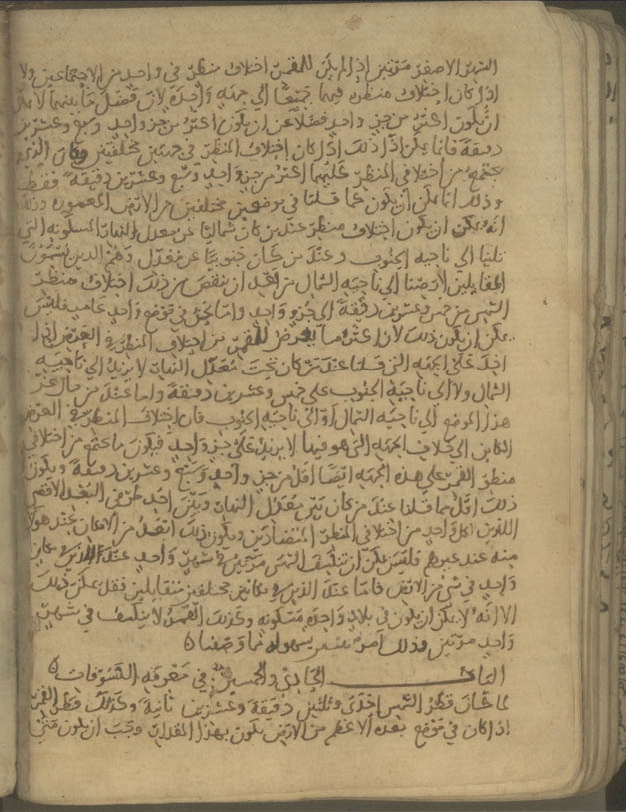 الشهر الاصغر مرتين اذا لم يكن للقمر اختلاف منظر في واحد من الاجتماعين ولا
اذا كان اختلاف منظره فيهما جميعا الى جهة واحدة لان فضل ما بينهما لا يمكن
ان يكون اكثر من جزء واحد فضلا عن ان يكون اكثر من جزء واحد وسبع وعشرين
دقيقة فانما يمكن اذا ذلك اذا كان اختلاف المنظر في جهتين مختلفتين وكان الذي
يجتمع من اختلافي المنظر عليهما اكثر من جزء واحد وسبع وعشرين دقيقة فقط
وذلك انما يمكن ان يكون كما قلنا في موضعين مختلفين من الارض المعمورة وذلك
انه يمكن ان يكون اختلاف منظر عند من كان شماليا عن معدل النهار المسكونة التي
تلينا الى ناحية الجنوب وعند من كان جنوبيا عن معدل وهم الذين يسمون
المقابلين لارضنا الى ناحية الشمال من بعد ان ينقص من ذلك اختلاف منظر
الشمس من خمس وعشرين دقيقة الى جزء واحد واما نحن في موضع واحد فليس
يمكن ان يكون ذلك لان اكثر ما يعرض للقمر من اختلاف المنظر في العرض اذا
اخذ على الجهة التي قلنا عند من كان تحت معدل النهار لا يزيد الى ناحية
الشمال ولا الى ناحية الجنوب على خمس وعشرين دقيقة واما عند من مال عن
هذا الموضع الى ناحية الشمال او الى ناحية الجنوب فان اختلاف المنظر في العرض
الكاين الى خلاف الجهة التي هو فيها لا يزيد على جزء واحد فيكون ما يجتمع من اختلافي
منظر القمر على هذه الجهة ايضا اقل من جزء واحد وسبع وعشرين دقيقة ويكون
ذلك اقل مما قلنا عند من كان بين معدل النهار وبين احد طرفي البعد الاقصى
اللذين لكل واحد من اختلافي المنظر المتضادين ويكون ذلك ابعد من الامكان عند هولا
منه عند غيرهم فليس يمكن ان تنكسف الشمس مرتين في شهر واحد عند الذين في مكان
واحد في شيء من الارض فاما عند الذين في مكانين مختلفين متقابلين فقد يمكن ذلك
الا انه لا يمكن ان يكون في بلاد واحدة مسكونة وكذلك القمر لا ينكسف في شهر
واحد مرتين وذلك امر يتبين بسهولة مما وصفنا
الباب الحادي والخمسون في معرفة الكسوفات
لما كان قطر الشمس احدى وثلثين دقيقة وعشرين ثانية وكذلك قطر القمر
اذا كان في موضع بعده الاعظم من الارض يكون بهذا المقدار وجب ان يكون متى